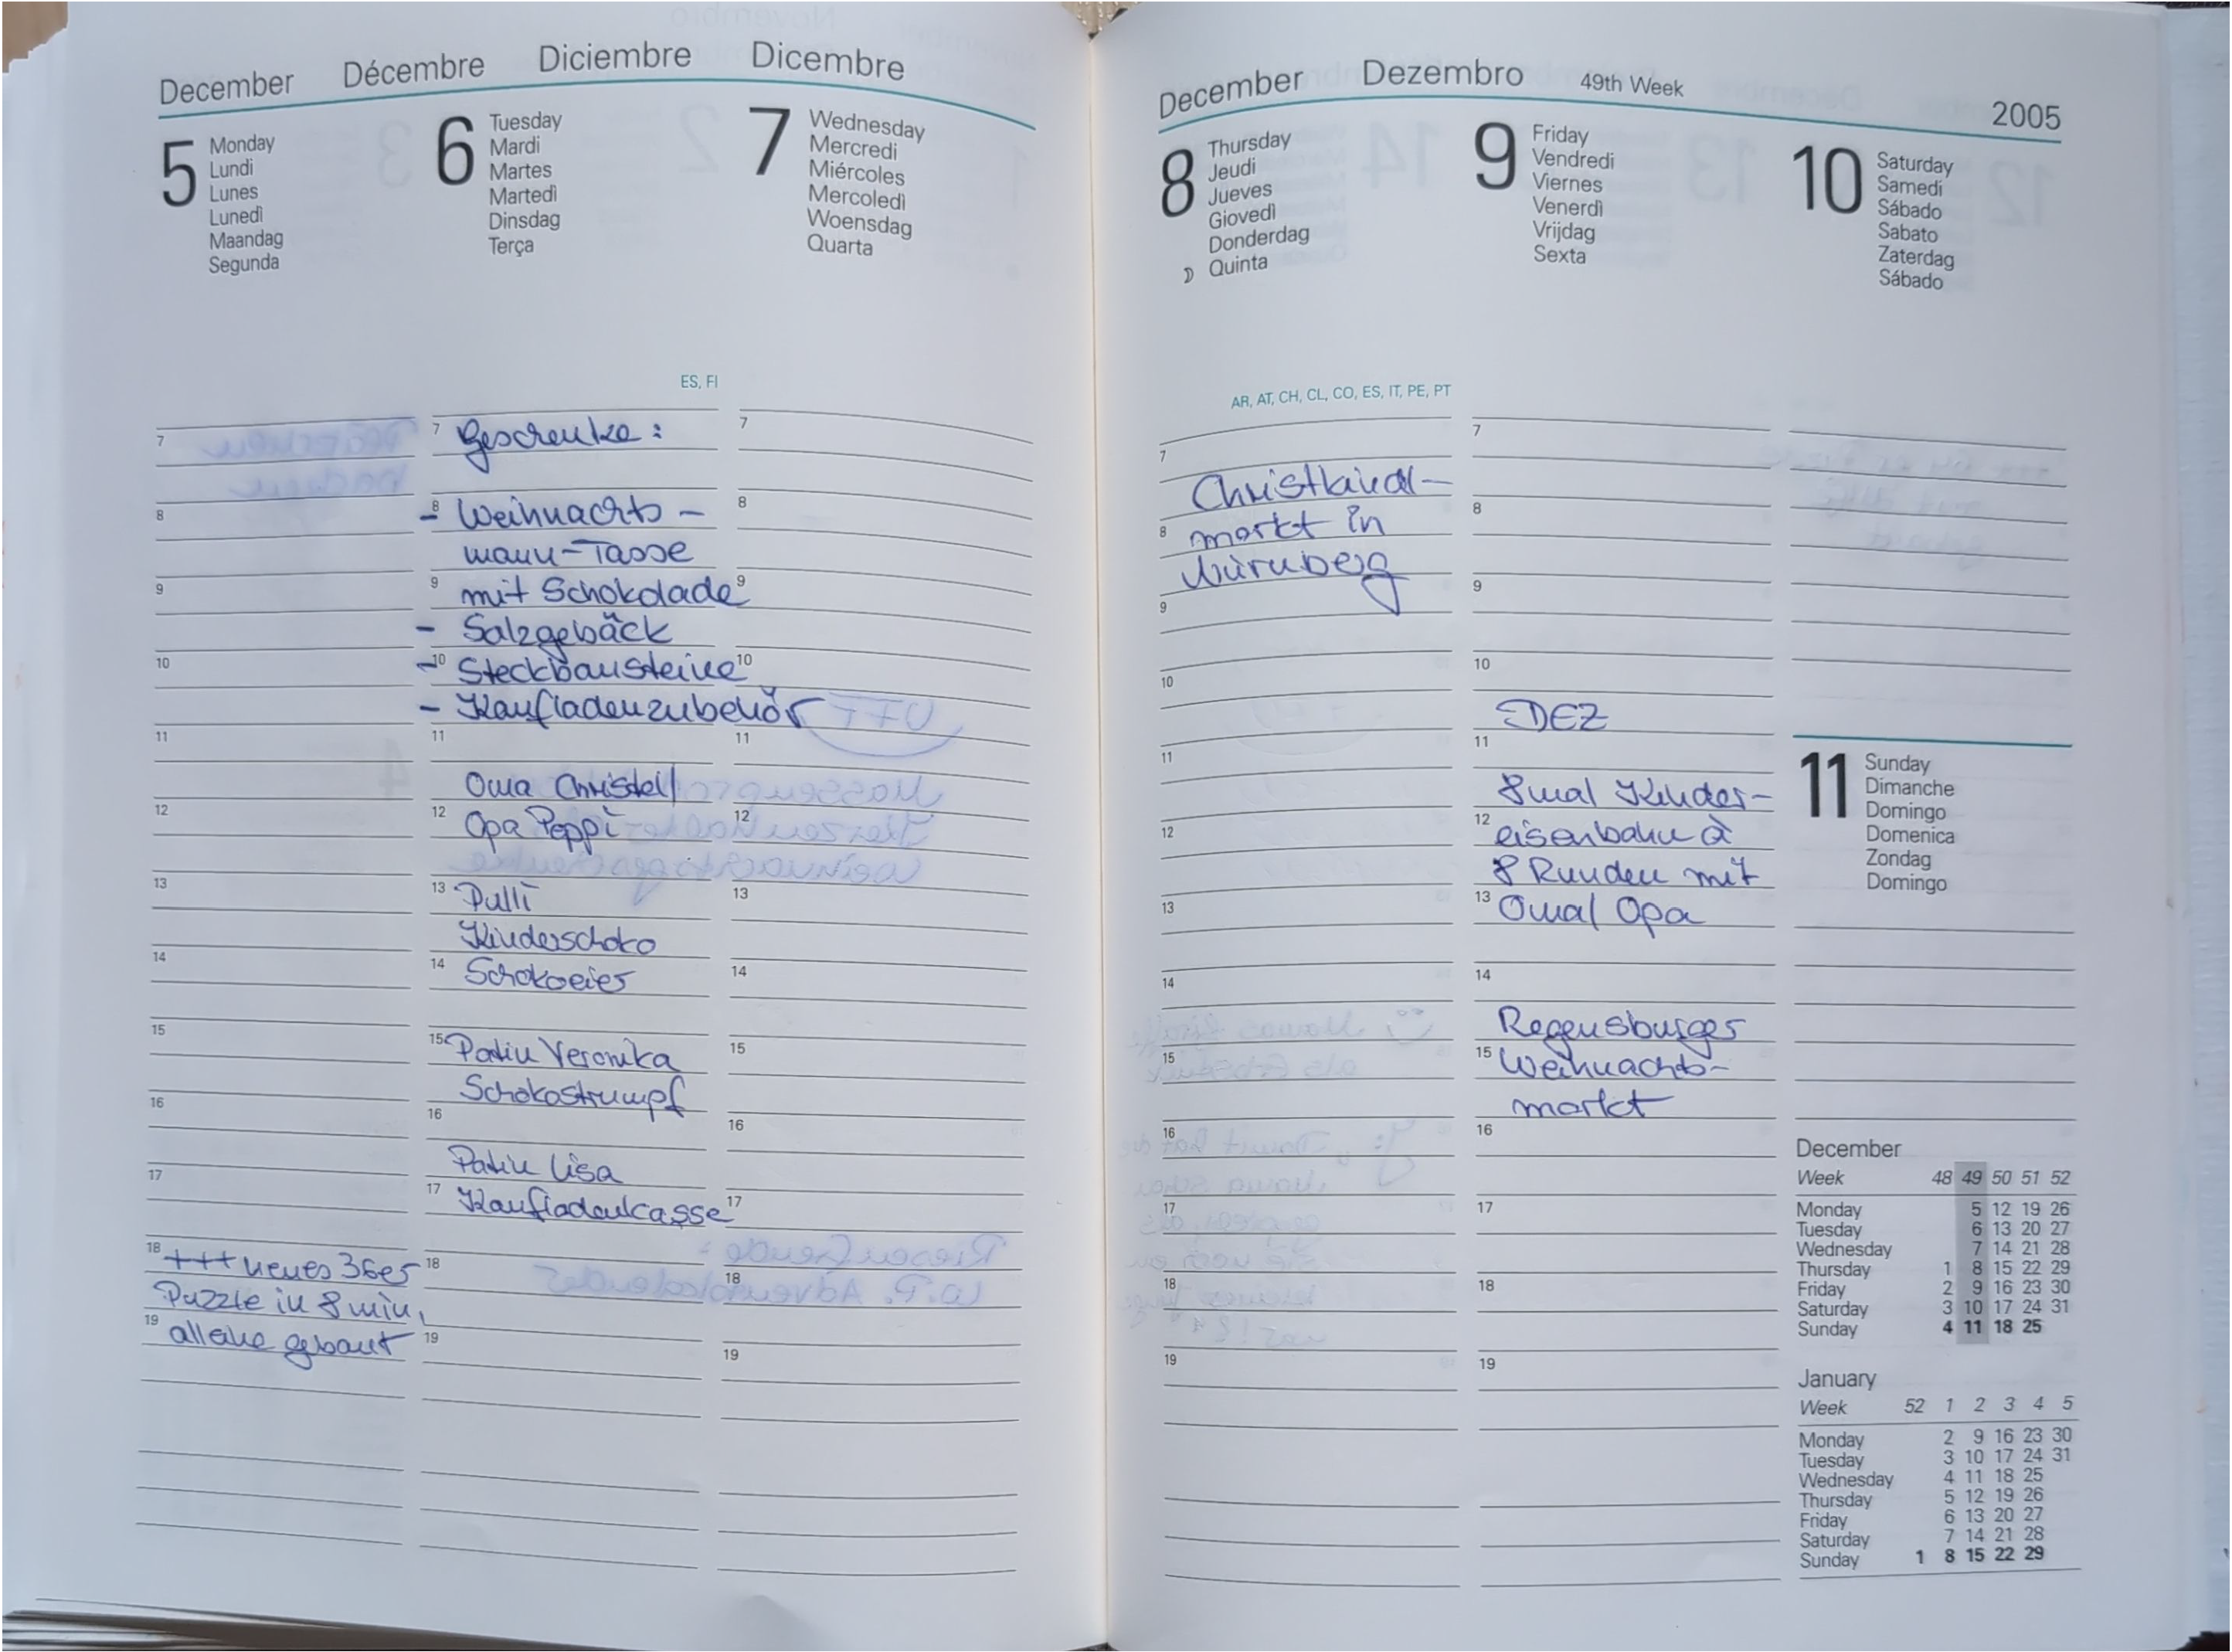 December Décembre Diciembre Dicembre
5
Monday
Lundi
Lunes
Lunedì
Maandag
Segunda
6
Tuesday
Mardi
Martes
Martedì
Dinsdag
Terça
7
Wednesday
Mercredi
Miércoles
Mercoledì
Woensdag
Quarta
ES, FI
7
8
9
10
11
12
13
14
15
16
17
18
+++ neues 36er
Puzzle in 8 min,
19
alleine gebaut
7
Geschenke:
8
- Weihnachts-
mann-Tasse
9
mit Schokolade
- Salzgebäck
10
- Steckbausteine
- Kaufladenzubehör
11
Oma Christel/
12
Opa Peppi
13
Pulli
Kinderschoko
14
Schokoeier
15
Patin Veronika
Schokostrumpf
16
Patin Lisa
17
Kaufladenkasse
18
19
7
8
9
10
11
12
13
14
15
16
17
18
19
December Dezembro 49th Week 2005
8
Thursday
Jeudi
Jueves
Giovedì
Donderdag
Quinta
9
Friday
Vendredi
Viernes
Venerdì
Vrijdag
Sexta
10
Saturday
Samedi
Sábado
Sabato
Zaterdag
Sábado
AR, AT, CH, CL, CO, ES, IT, PE, PT
7
Christkindl-
8
markt in
Nürnberg
9
10
11
12
13
14
15
16
17
18
19
7
8
9
10
DEZ
11
8mal Kinder-
12
eisenbahn à
8 Runden mit
13
Oma/Opa
14
Regensburger
15
Weihnachts-
markt
16
17
18
19
11
Sunday
Dimanche
Domingo
Domenica
Zondag
Domingo
December
Week 48 49 50 51 52
Monday 5 12 19 26
Tuesday 6 13 20 27
Wednesday 7 14 21 28
Thursday 1 8 15 22 29
Friday 2 9 16 23 30
Saturday 3 10 17 24 31
Sunday 4 11 18 25
January
Week 52 1 2 3 4 5
Monday 2 9 16 23 30
Tuesday 3 10 17 24 31
Wednesday 4 11 18 25
Thursday 5 12 19 26
Friday 6 13 20 27
Saturday 7 14 21 28
Sunday 1 8 15 22 29